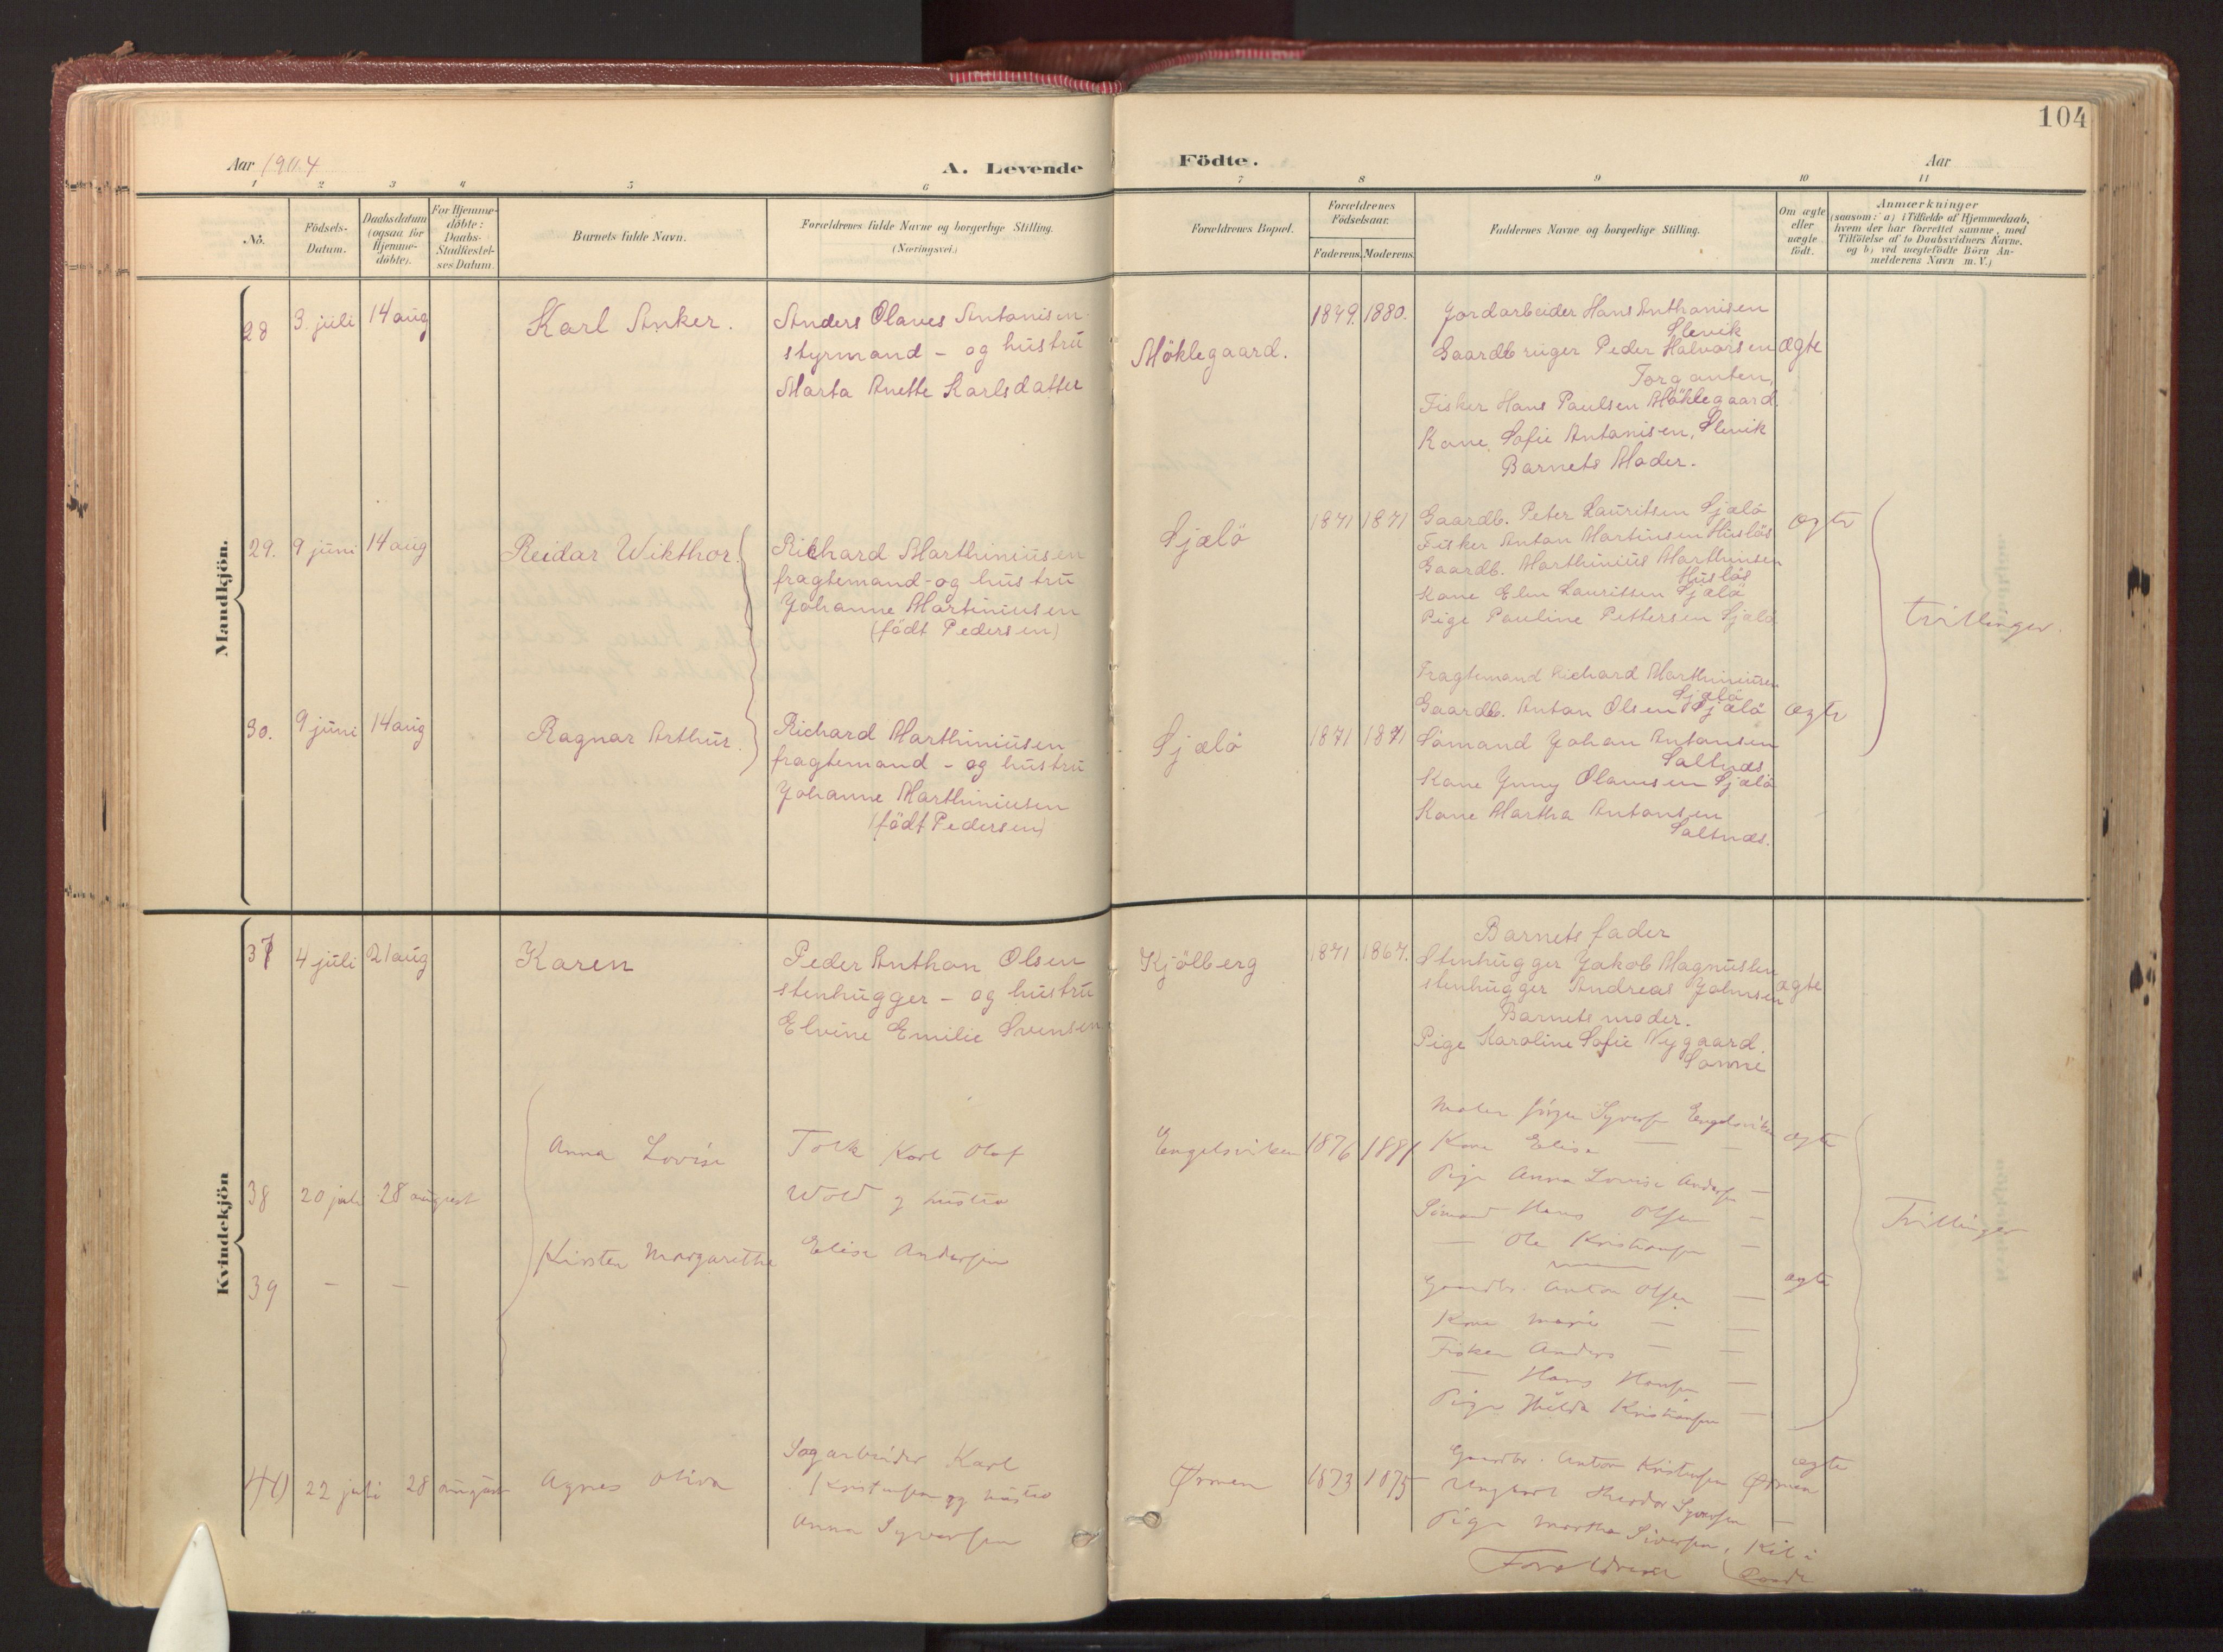 104
Aar 1904
A. Levende
Födte.
Aar
1 2 3 4 5 6 7 8 9 10 11
No.
Födsels-
Datum.
Daabsdatum
(ogsaa for
Hjemme-
döbte).
For Hjemme-
döbte:
Daabs-
Stadfæstel-
ses Datum.
Barnets fulde Navn.
Forældrenes fulde Navne og borgerlige Stilling.
(Næringsvei.)
Forældrenes Bopæl.
Forældrenes
Födselsaar.
Faderens. Moderens.
Faddernes Navne og borgerlige Stilling.
Om ægte
eller
uægte
födt.
Anmærkninger
(saasom: a) i Tilfælde af Hjemmedaab,
hvem der har forrettet samme, med
Tilföielse af to Daabsvidners Navne,
og b) ved uægtefödte Börn An-
melderens Navn m. V.)
Mandkjön.
28 3. juli 14 aug
Karl Anker.
Anders Olaves Antonisen
styrmand - og hustru
Marta Anette Karlsdatter
Möklegaard.
1849. 1880.
Jordarbeider Hans Anthonisen
Slevik
Gaardbruger Peder Halvorsen
Torganten,
Fisker Hans Paulsen Möklegaard.
Kone Sofie Antonisen, Slevik
Barnets Moder.
ægte
29. 9 juni 14 aug
Reidar Wikthor.
Richard Marthiniusen
fragtemand - og hustru
Johanne Martiniusen
(födt Pedersen)
Sjælö
1871 1871
Gaardb. Peter Lauritsen Sjælö
Fisker Anton Martinsen Huslös
Gaardb. Marthinius Marthinsen
Huslös
Kone Elen Lauritsen Sjælö
Pige Pauline Pettersen Sjælö
ægte
Tvillinger.
30. 9 juni 14 aug
Ragnar Arthur.
Richard Marthiniusen
fragtemand - og hustru
Johanne Marthiniusen
(födt Pedersen)
Sjælö
1871 1871
Fragtemand Richard Marthiniusen
Sjælö
Gaardb. Anton Olsen Sjælö
Sömand Johan Antonsen
Saltnæs
Kone Jenny Olausen Sjælö
Kone Martha Antonsen
Saltnæs.
ægte
Kvindekjön
37 4 juli 21 aug
Karen
Peder Anthon Olsen
stenhugger - og hustru
Elvine Emilie Svensen
Kjölberg
1871 1867.
Barnets fader
Stenhugger Jakob Magnussen
stenhugger Andreas Johnsen
Barnets moder.
Pige Karoline Sofie Nygaard.
Sonne
ægte
38 20 juli 28 august
Anna Lovise
Tolk Karl Olaf
Wold og hustru
Elise Andersen
Engelsviken
1876 1881
Maler Jörgen Syversen Engelsviken
Kone Elise — —
Pige Anna Lovise Andersen —
Sömand Hans Olsen —
— Ole Kristiansen —
ægte
Tvillinger
39 — —
Kirsten Margarethe
Gaardbr. Anton Olsen —
Kone Marie — —
Fisker Anders — —
— Hans Hansen —
Pige Hilda Kristiansen —
ægte
40 22 juli 28 august
Agnes Oliva
Sagarbeider Karl
Kristensen og hustru
Anna Syversen
Ørmen
1873 1875
Gaardbr. Anton Kristensen Ørmen
Ungkarl Theodor Syversen —
Pige Martha Siversen, Kil i
Raade
Forældrene
ægte